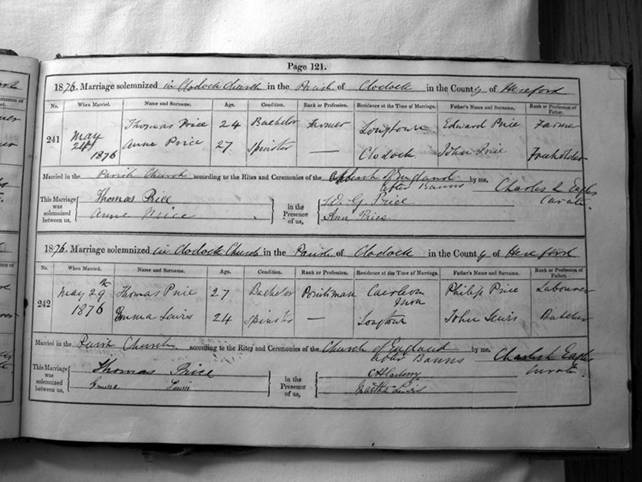 Page 121.
1876. Marriage solemnized in Clodock Church in the Parish of Clodock in the County of Hereford
No. When Married. Name and Surname. Age. Condition. Rank or Profession. Residence at the Time of Marriage. Father's Name and Surname. Rank or Profession of Father.
241 May 24th 1876 Thomas Price 24 Bachelor Farmer Longtown Edward Price Farmer
Anne Price 27 Spinster — Clodock John Price Freeholder
Married in the Parish Church according to the Rites and Ceremonies of the Church of England after Banns by me,
Charles L Eagles Curate
This Marriage was solemnized between us, Thomas Price
Anne Price
in the Presence of us, Price
Ann Price
1876. Marriage solemnized in Clodock Church in the Parish of Clodock in the County of Hereford
No. When Married. Name and Surname. Age. Condition. Rank or Profession. Residence at the Time of Marriage. Father's Name and Surname. Rank or Profession of Father.
242 May 29th 1876 Thomas Price 27 Bachelor Caerleon Philip Price Labourer
Emma Lewis 24 Spinster — Longtown John Lewis Butcher
Married in the Parish Church according to the Rites and Ceremonies of the Church of England after Banns by me,
Charles L Eagles Curate
This Marriage was solemnized between us, Thomas Price
Emma Lewis
in the Presence of us,
Martha Lewis